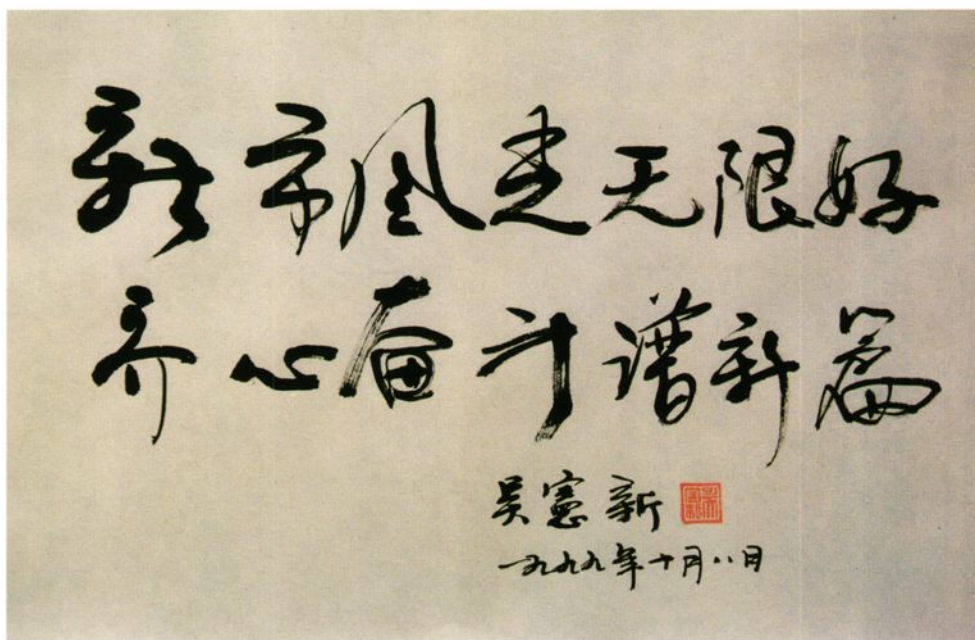 新市风光无限好
齐心奋斗谱新篇
吴憲新
一九九九年十月八日